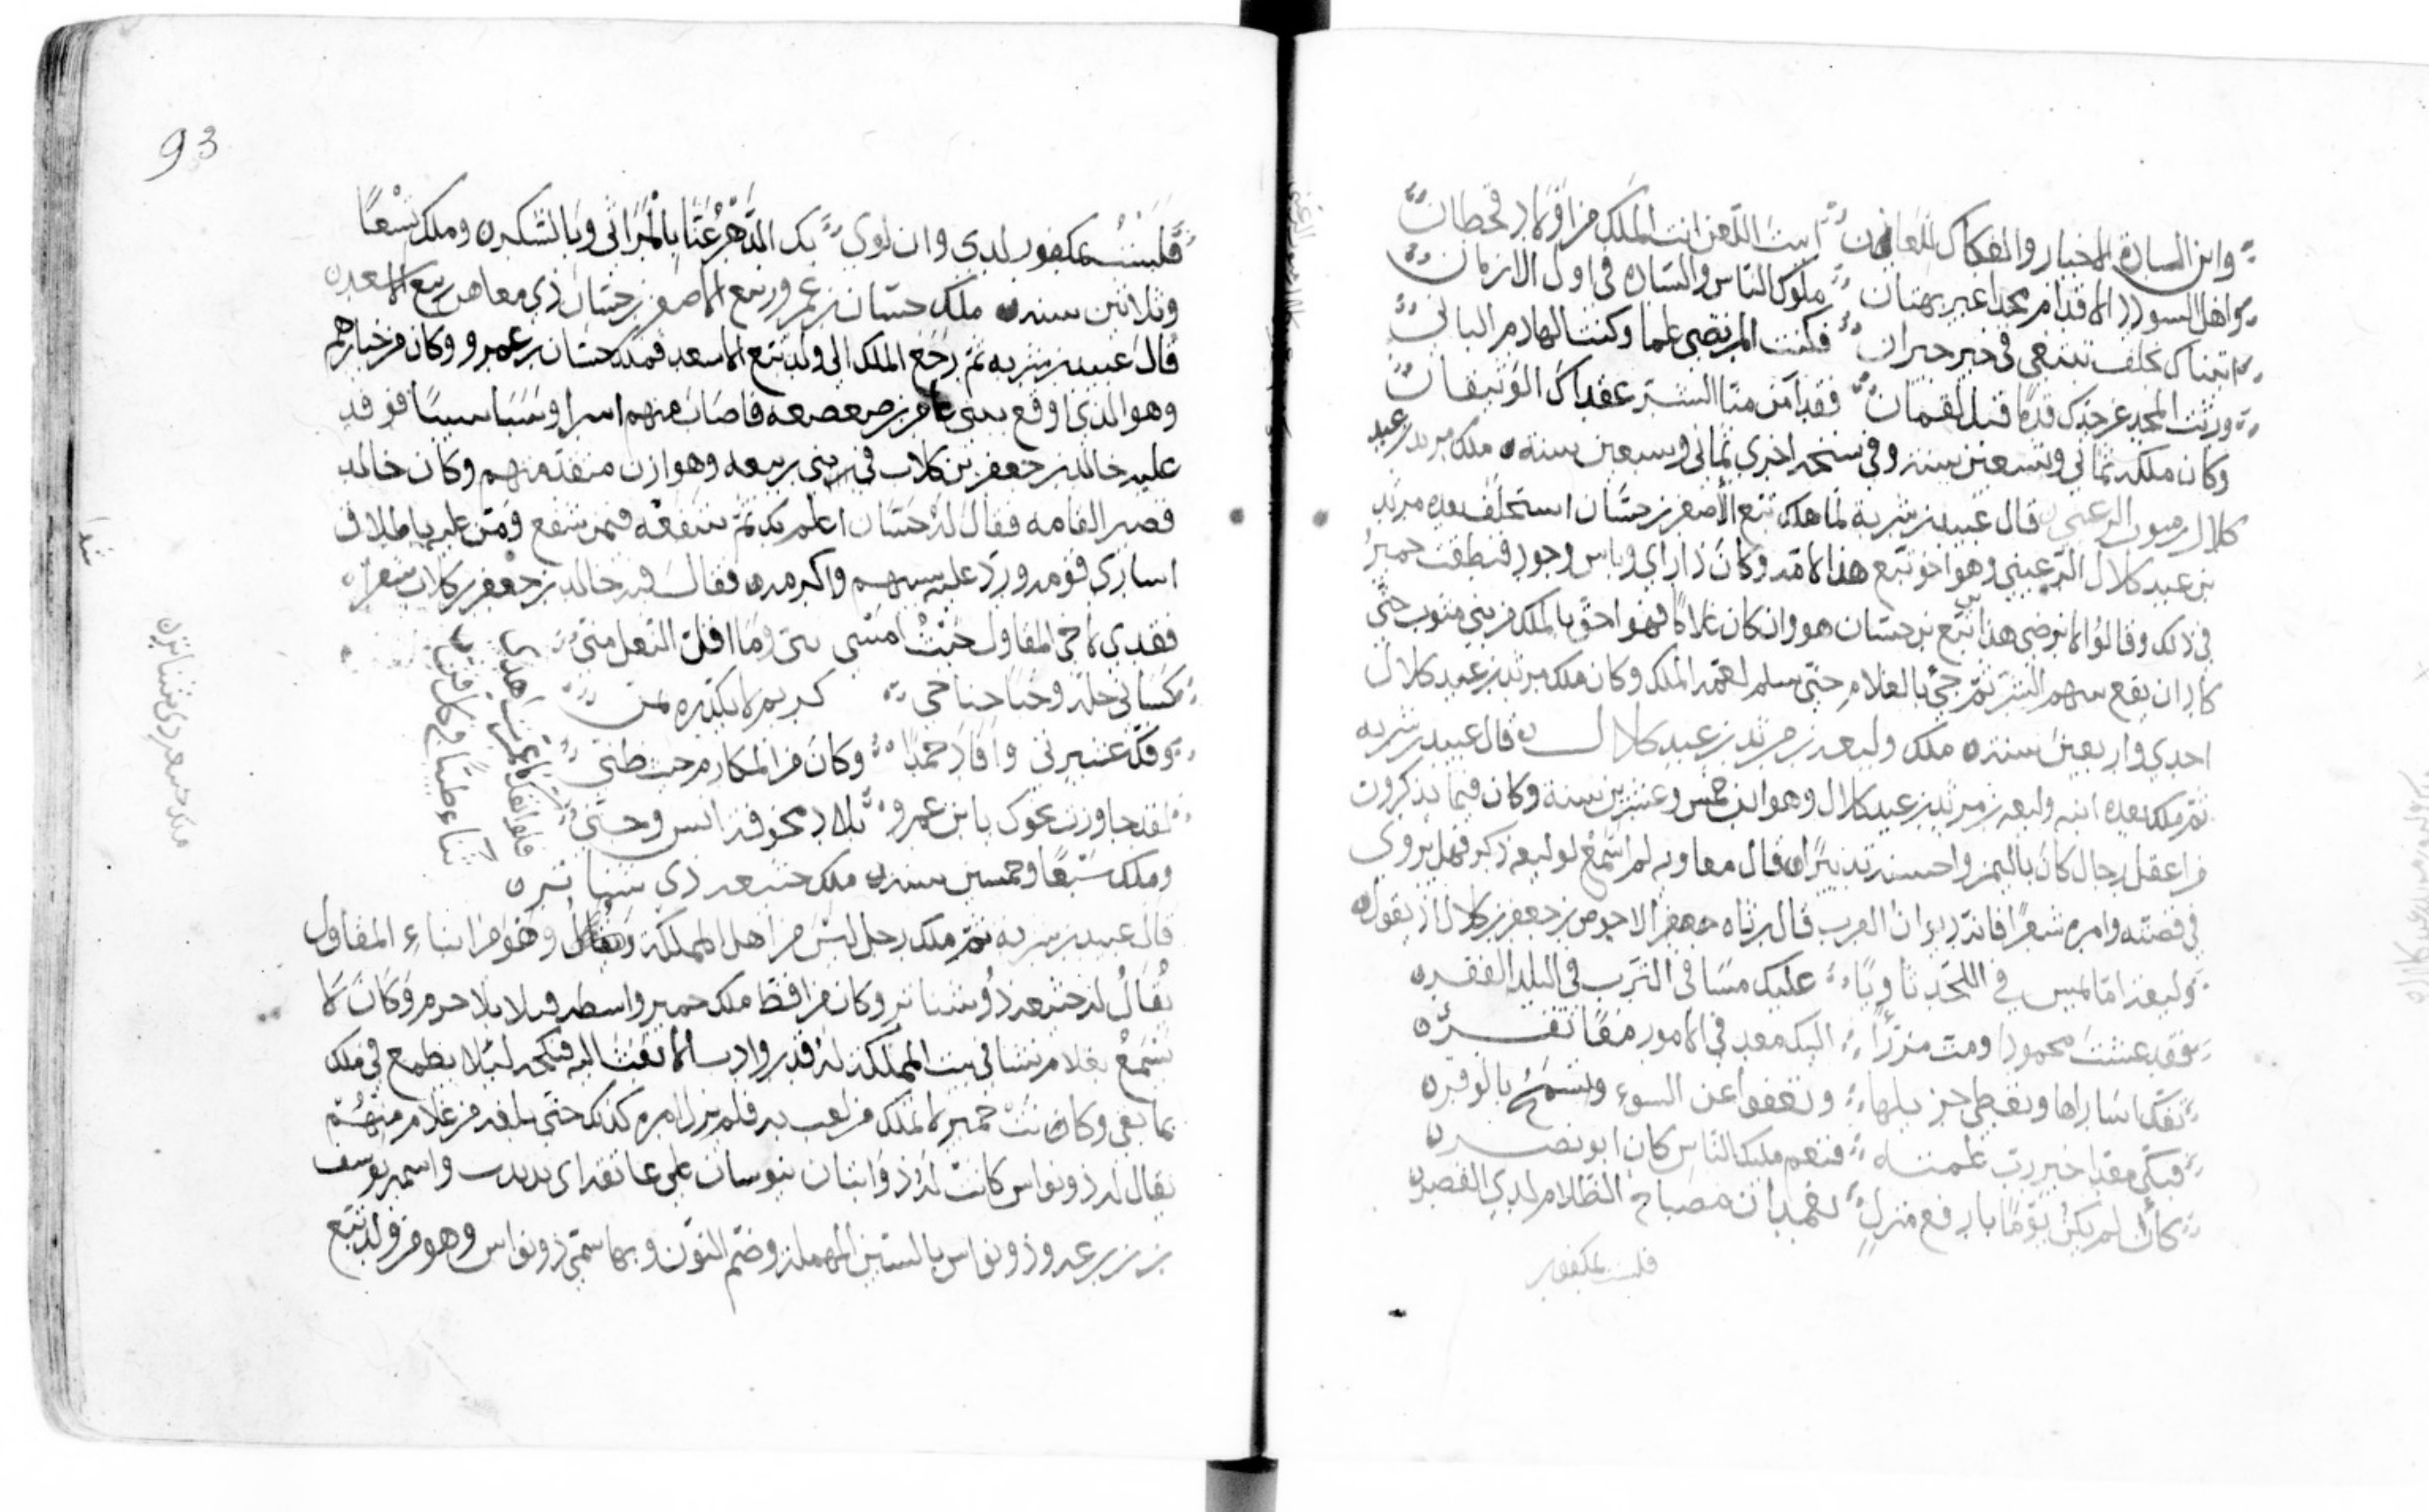 وابن السادة الاخيار والفكاك للعانين ابيت اللعن انت الملك من اولاد قحطان
واهل السودد الاقدام مجدا غير بهتان ملوك الناس والساده في اول الازمان
اتيناك بحلف نبتغي في خير جيران فكنت المرتضى علما وكنت الهادم الباني
ورثت المجد عن جدك قدما قبل لقمان فقد امن منا السر عقداك الوثيقان
وكان ملكه ثماني وتسعين سنة وفي نسخه اخرى ثماني وسبعين سنة ملك مرثد بن عبد
كلال الرعيني قال عبيد بن شريه لما هلك تبع الاصغر بن حسان استخلف بعده مرثد
بن عبد كلال الرعيني وهو اخو تبع هذا لامه وكان ذا راي وباس وجود فنطقت حمير
في ذلك وقالوا لا نرضى هذا تبع بن حسان هو وان كان غلاما فهو احق بالملك من بني مثوب حتى
كاد ان يقع بينهم الشر ثم جئ بالغلام حتى سلم لعمه الملك وكان ملك مرثد بن عبد كلال
احدى واربعين سنة ملك وليعه بن مرثد بن عبد كلال قال عبيد بن شريه
ثم ملك بعده ابنه وليعه بن مرثد بن عبد كلال وهو ابن خمس وعشرين سنة وكان فيما يذكرون
من اعقل رجال كان باليمن واحسنه تدبيرا قال معاويه لم اسمع لوليعه ذكر فهل يروى
في قصته وامره شعرا فانه ديوان العرب قال رثاه جعفر الاحوص بن جعفر بن كلاب اذ يقول
وليعه اما تمس في اللحد ثاويا عليك مسافي الترب في البلد القفره
فقد عشت محمودا ومت مرزأ اليك معد في الامور معا تفره
تفك اساراها وتعطي جزيلها وتعفوا عن السوء وتسمح بالوفره
فبكي معد اخير رب علمته فنعم مليك الناس كان ابو نصره
كأن لم يكن يوما بارفع منزل لغمدان مصباح الظلام لدي القصره
فلست بمكفور
فلست بمكفور لدي وان لوى بك الدهر عنا بالمراثي وبالشكره وملك تسعا
وثلاثين سنه ملك حسان بن عمرو بن تبع الاصغر بن حسان ذي معاهر بن تبع الاسعد
قال عبيد بن شريه ثم رجع الملك الى ولد تبع الاسعد فملك حسان بن عمرو وكان من خيارهم
وهو الذي اوقع ببني عامر بن صعصعه فاصاب منهم اسرا وسبا سبيا فوفد
عليه خالد بن جعفر بن كلاب في بني ربيعه وهوازن منقذ منهم وكان خالد
قصير القامه فقال له حسان ثم شفعه فيمن شفع ومن عليه باطلاق
اسارى قومه ورد عليه سبيهم واكرمه فقال فيه خالد بن جعفر بن كلاب شعرا
فقدى لاخي المقاول حيث امسى بني وما اقلت النعل مني
كساني حلة وحبا جناحي كريم لا يكدره بمن
وفك عشيرتي وافاد حمدا وكان من المكارم حيث ظني
لقد جاوزت نحوك يابن عمرو بلاد مخوفة انس وجن
فلو انفك ما عمرت اهدى
ثناء طيبا
وملك سبعا وخمسين سنه ملك خنيعه ذي شناتر
قال عبيد بن شريه ثم ملك رجل ليس من اهل المملكة وهو من ابناء المقاول
يقال له خنيعه ذو شناتر وكان من افظ ملك حمير واسطه قبلا بلا جرم وكان لا
يسمع بغلام نشا في بيت المملكة له قدر الا بعث اليه فنكحه لئلا يطمع في ملك
بما بقي وكانت حمير لا تملك من لعب به فلم يزل امره كذلك حتى بلغه من غلام منهم
يقال له ذو نواس كانت له ذؤابتان تنوسان على عاتقه واسمه يوسف
بن زرعه وذو نواس بالسين المهملة وضم النون وبها سمي ذو نواس وهو من ولد تبع
ملك خنيعه ذي شناتر
93